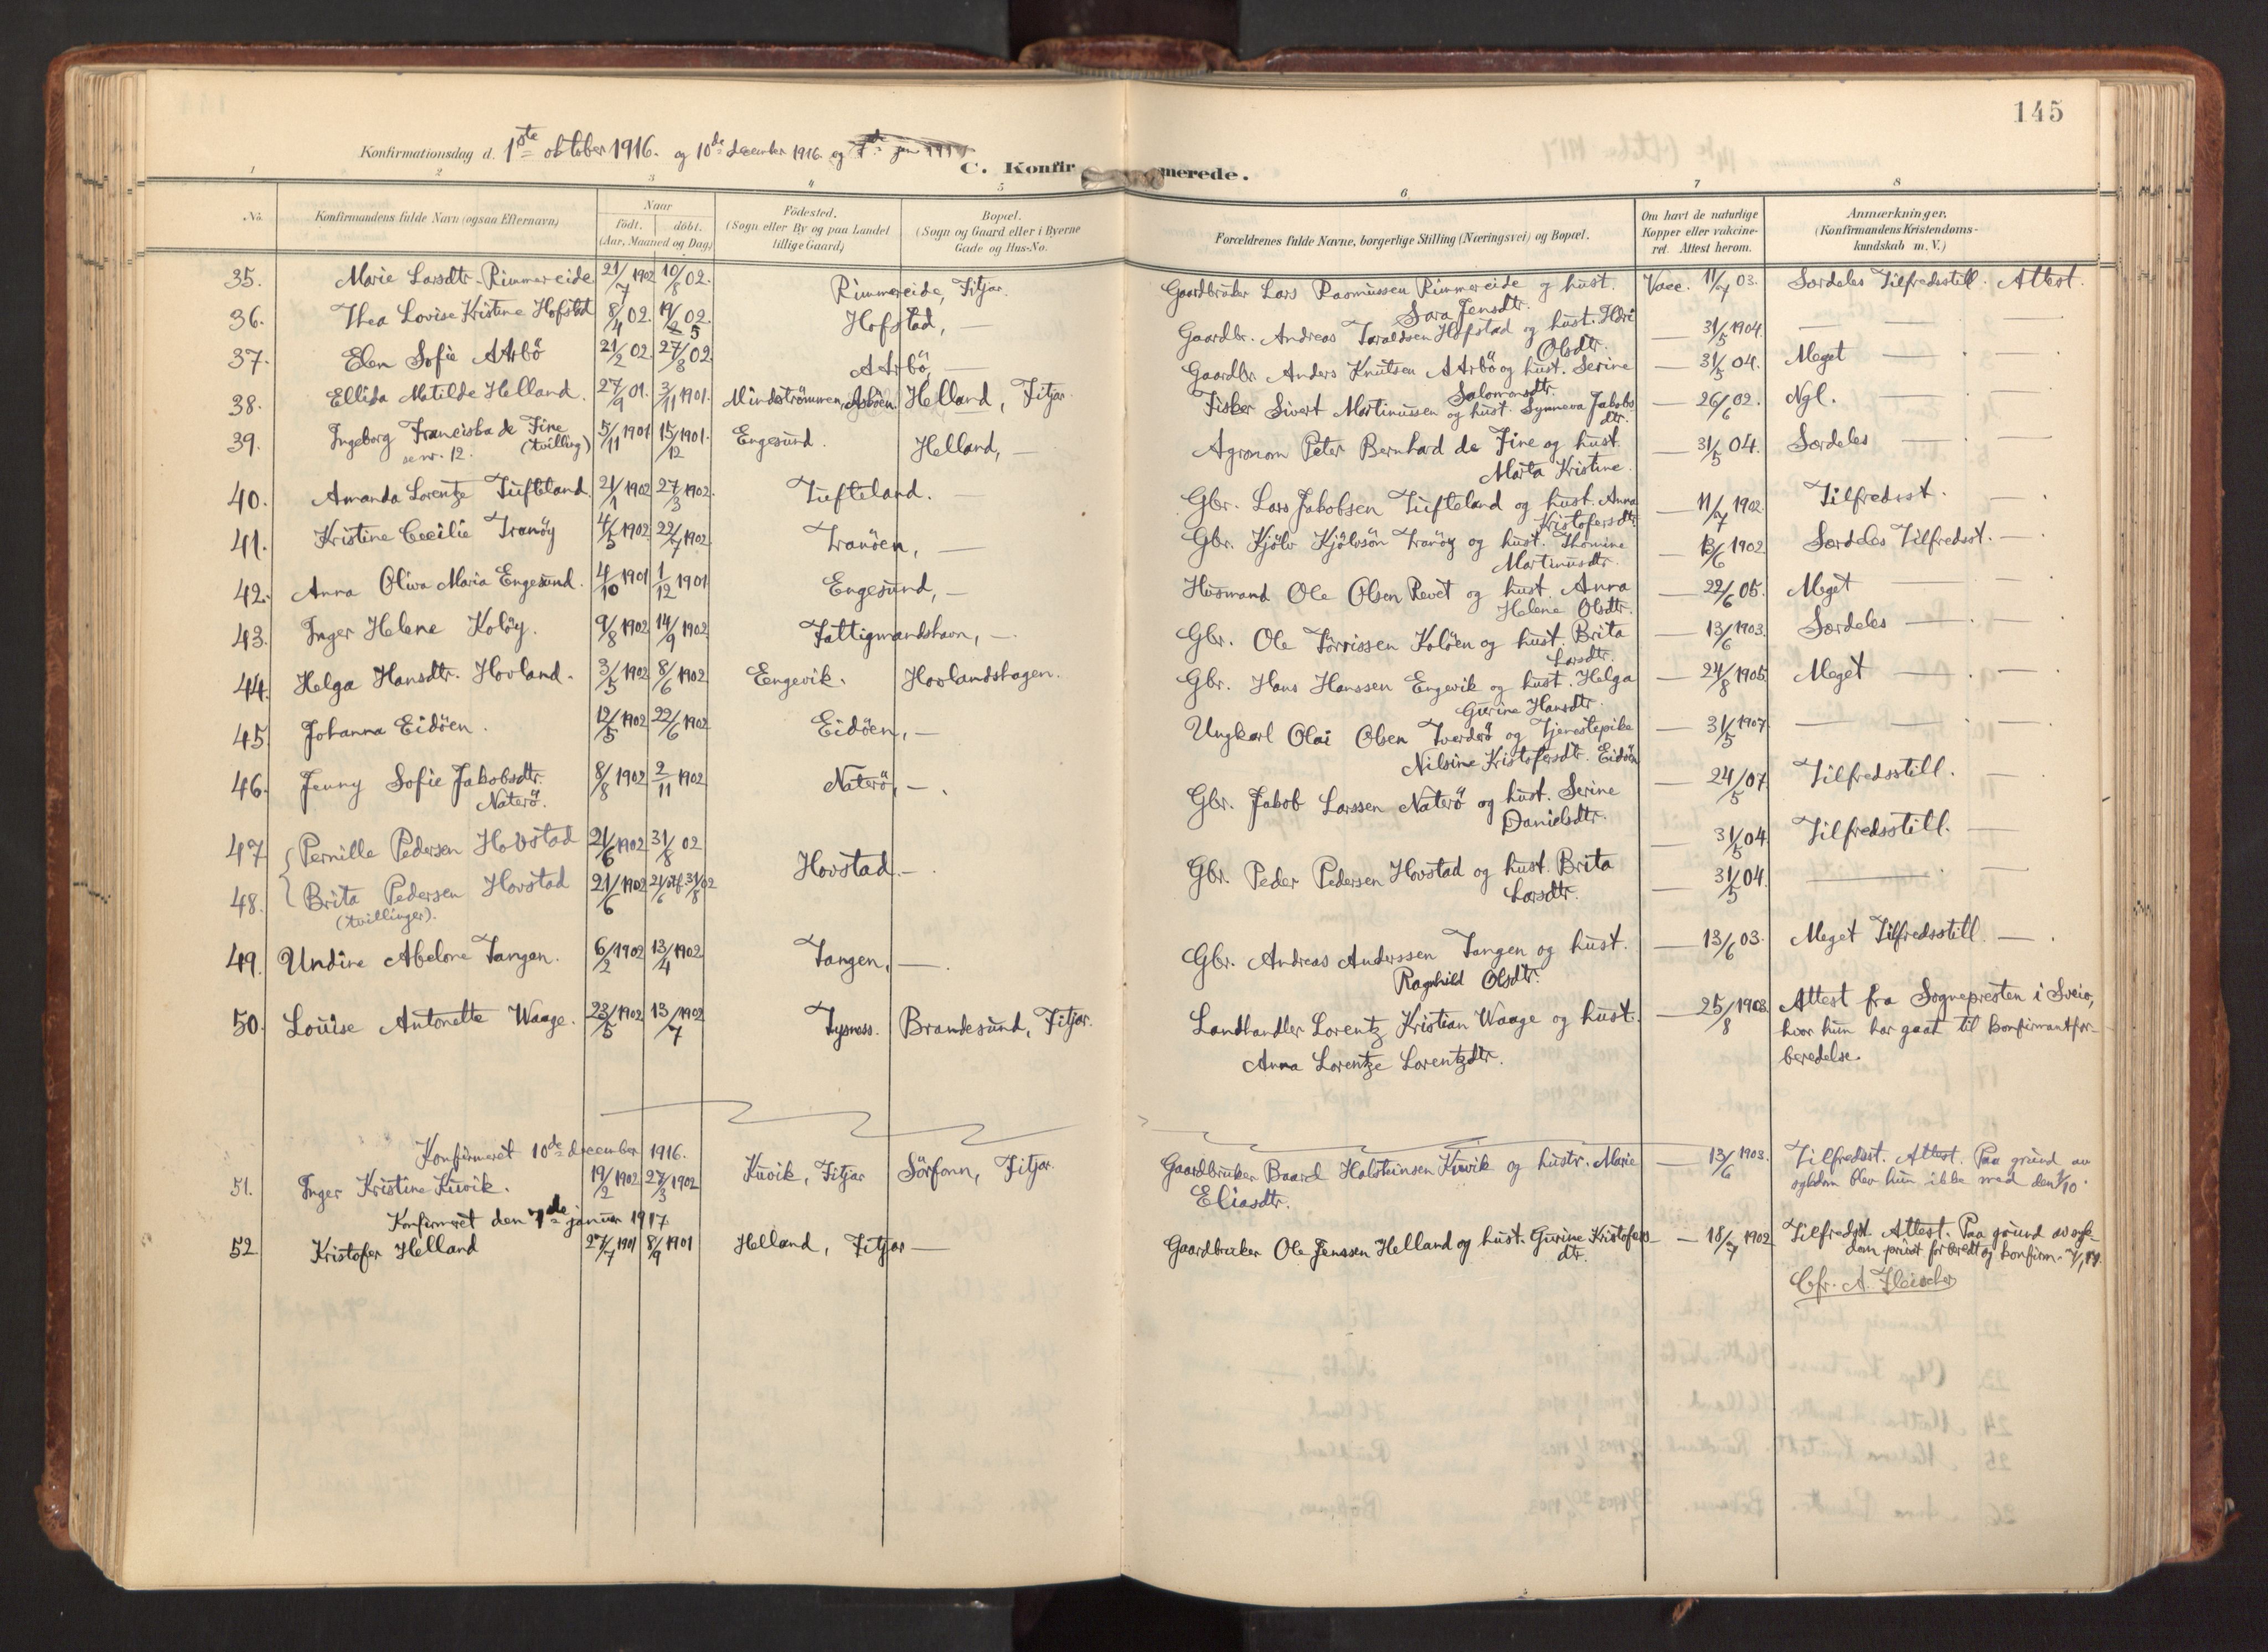 145
Konfirmationsdag d. 1ste oktober 1916. og 10de december 1916 og
C. Konfirmerede.
1 2 3 4 5 6 7 8
No. Konfirmandens fulde Navn (ogsaa Efternavn) Naar født. døbt. (Aar, Maaned og Dag) Födested. (Sogn eller By og paa Landet tillige Gaard) Bopæl. (Sogn og Gaard eller i Byerne Gade og Hus-No. Forældrenes fulde Navne, borgerlige Stilling (Næringsvei) og Bopæl. Om havt de naturlige Kopper eller vakcineret. Attest herom. Anmærkninger. (Konfirmandens Kristendomskundskab m. V.)
35. Marie Larsdtr. Rimmereide 21/7 1902 10/8 02. Rimmereide, Fitjar. Gaardbruker Lars Rasmussen Rimmereide og hust. Vacc. 11/7 03. Særdeles Tilfredsstill. Attest.
Sara Jensdtr.
36. Thea Lovise Kristine Hofstad 8/4 02. 19/5 02. Hofstad, — Gaardbr. Andreas Taraldsen Hofstad og hust. — 31/5 1904. — — —
Olsdtr.
37. Elen Sofie Aarbö 21/2 02. 27/8 02. Aarbö, — Gaardbr. Anders Knutsen Aarbö og hust. Serine — 31/5 04. Meget — . —
Salomonsdtr.
38. Ellida Matilde Helland. 27/9 01. 3/11 1901. Mindströmmen, Helland, Fitjar. Fisker Sivert Martinussen og hust. Synneva Jakobs — 26/6 02. Ngl. — —
dtr.
39. Ingeborg Franciska de Fine 5/11 1901 15/12 1901. Engesund. Helland, — Agronom Peter Bernhard de Fine og hust. — 31/5 04. Særdeles — . —
se nr. 12. (tvilling) Marta Kristine.
40. Amanda Lorentze Tufteland. 21/1 1902 27/3 1902. Tufteland. — Gbr. Lars Jakobsen Tufteland og hust. Anna — 11/7 1902. Tilfredsst. — .
Kristofersdtr.
41. Kristine Cecilie Tranöy 4/5 1902 22/7 1902. Tranöen, — Gbr. Kjölv Kjölvsön Tranöy og hust. Thomine — 13/6 1902 Særdeles Tilfredsst. — .
Martinusdtr.
42. Anna Oliva Maria Engesund. 4/10 1901 1/12 1901 Engesund, — Husmand Ole Olsen Revet og hust. Anna — 22/6 05. Meget — —
Helene Olsdtr.
43. Inger Helene Kolöy. 9/8 1902 14/9 1902 Fattigmandshavn, — Gbr. Ole Törrissen Kolöen og hust. Brita — 13/6 1903. Særdeles — . — .
Larsdtr.
44. Helga Hansdtr. Hovland. 3/5 1902 8/6 1902 Engevik. Hovlandshagen. Gbr. Hans Hanssen Engevik og hust. Helga — 24/8 1905. Meget — —
Gurine Hansdtr.
45. Johanna Eidöen. 12/5 1902 22/6 1902 Eidöen, — Ungkarl Olai Olsen Tverderö og Tjenestepike — 31/5 1907. — — . — .
Nilsine Kristofersdtr. Eidöen
46. Jenny Sofie Jakobsdtr. 8/8 1902 2/11 1902 Naterö, — . Gbr. Jakob Larssen Naterö og hust. Serine — 24/5 07. Tilfredsstill. —
Naterö. Danielsdtr.
47. Pernille Pedersen Hovstad 21/6 1902 31/8 02 — 31/5 04. Tilfredsstill. —
Hovstad — . Gbr. Peder Pedersen Hovstad og hust. Brita
48. Brita Pedersen Hovstad 21/6 1902 21/6 stf. 31/8 02 — 31/5 04. — . —
(tvillinger). Larsdtr.
49. Undine Abelone Tangen. 6/2 1902 13/4 1902 Tangen, — . Gbr. Andreas Anderssen Tangen og hust. — 13/6 03. Meget Tilfredsstill. — .
Ragnhild Olsdtr.
50. Louise Antonette Waage. 23/5 1902 13/7 1902 Tysness. Brandesund, Fitjar. Landhandler Lorentz Kristian Waage og hust. — 25/8 1903. Attest fra Sognepresten i Sveio,
hvor hun har gaat til konfirmantfor-
Anna Lorentze Lorentzdtr. beredelse.
Konfirmeret 10de december 1916.
51. Inger Kristine Kuvik. 19/2 1902 27/3 1902 Kuvik, Fitjar Sörfonn, Fitjar. Gaardbruker Baard Halsteinsen Kuvik og hustr. Marie — 13/6 1903. Tilfredsst. Attest. Paa grund av
Eliasdtr. sygdom blev hun ikke med den 1/10.
Konfirmeret den 7de januar 1917
52 Kristofer Helland 27/7 1901 8/9 1901 Helland, Fitjar — Gaardbruker Ole Jenssen Helland og hust. Gurine Kristofers — 18/7 1902 Tilfredsst. Attest. Paa grund av syk-
dtr. dom privat forberedt og konfirm. 7/1 17.
Cfr. A. Fleischer